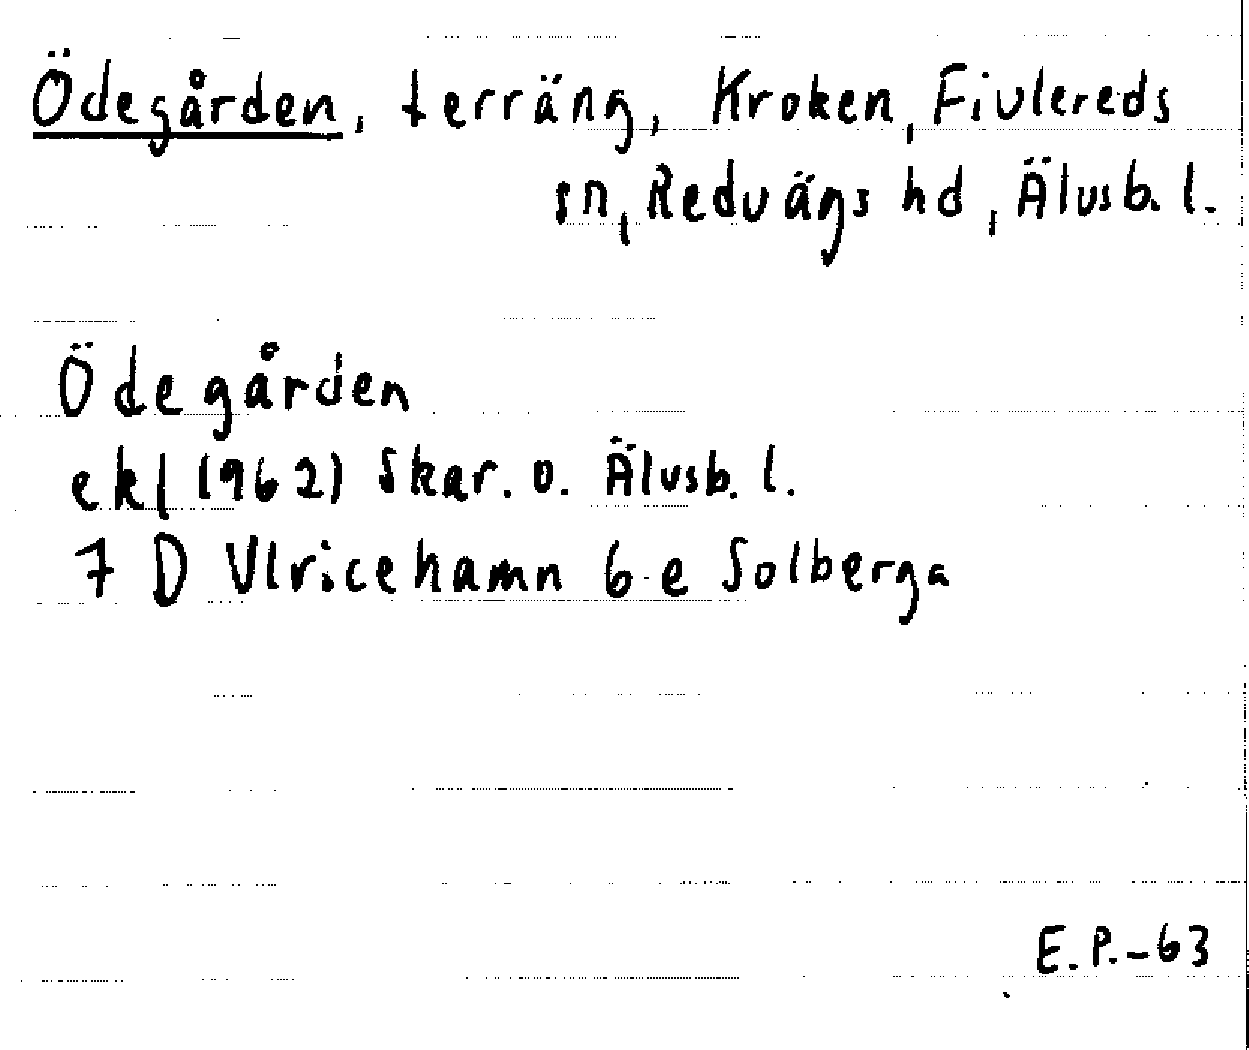 Ödegården, terräng, Kroken, Fivlereds
sn, Redvägs hd, Älvsb. l.
Ödegården
ekl (1962) Skar. o. Älvsb. l.
7 D Ulricehamn 6 e Solberga
E.P.-63